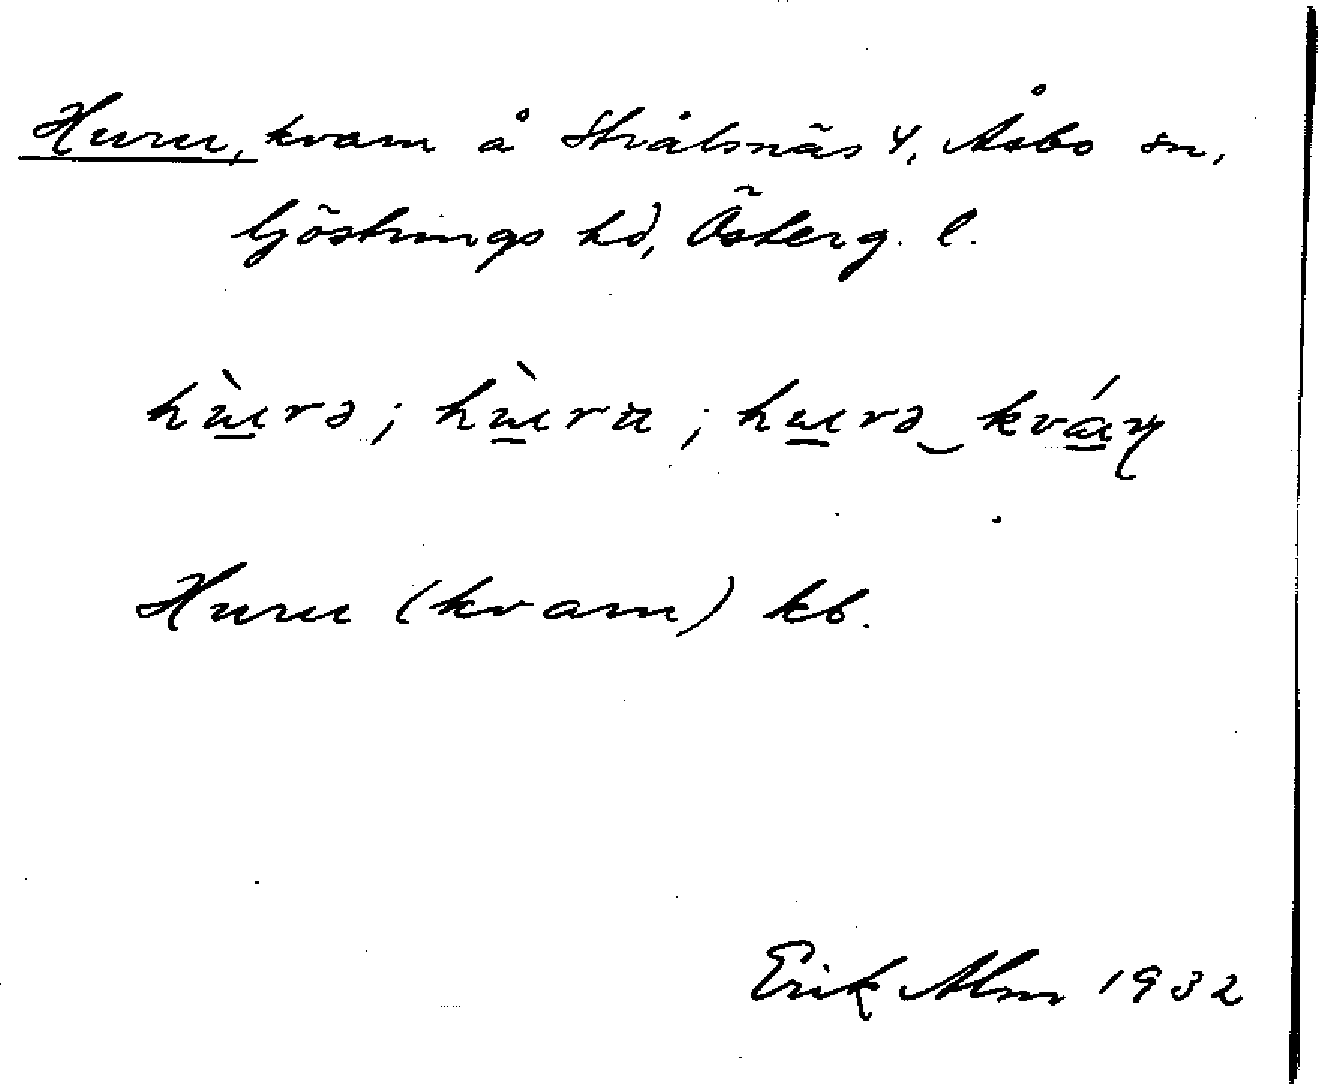 Huru, kvarn å Strålsnäs 4, Åsbo sn,
Göstrings hd, Österg. l.
hùrə; hùru; hurə‿kváɳ
Huru (kvarn) kb.
Erik Alm 1932